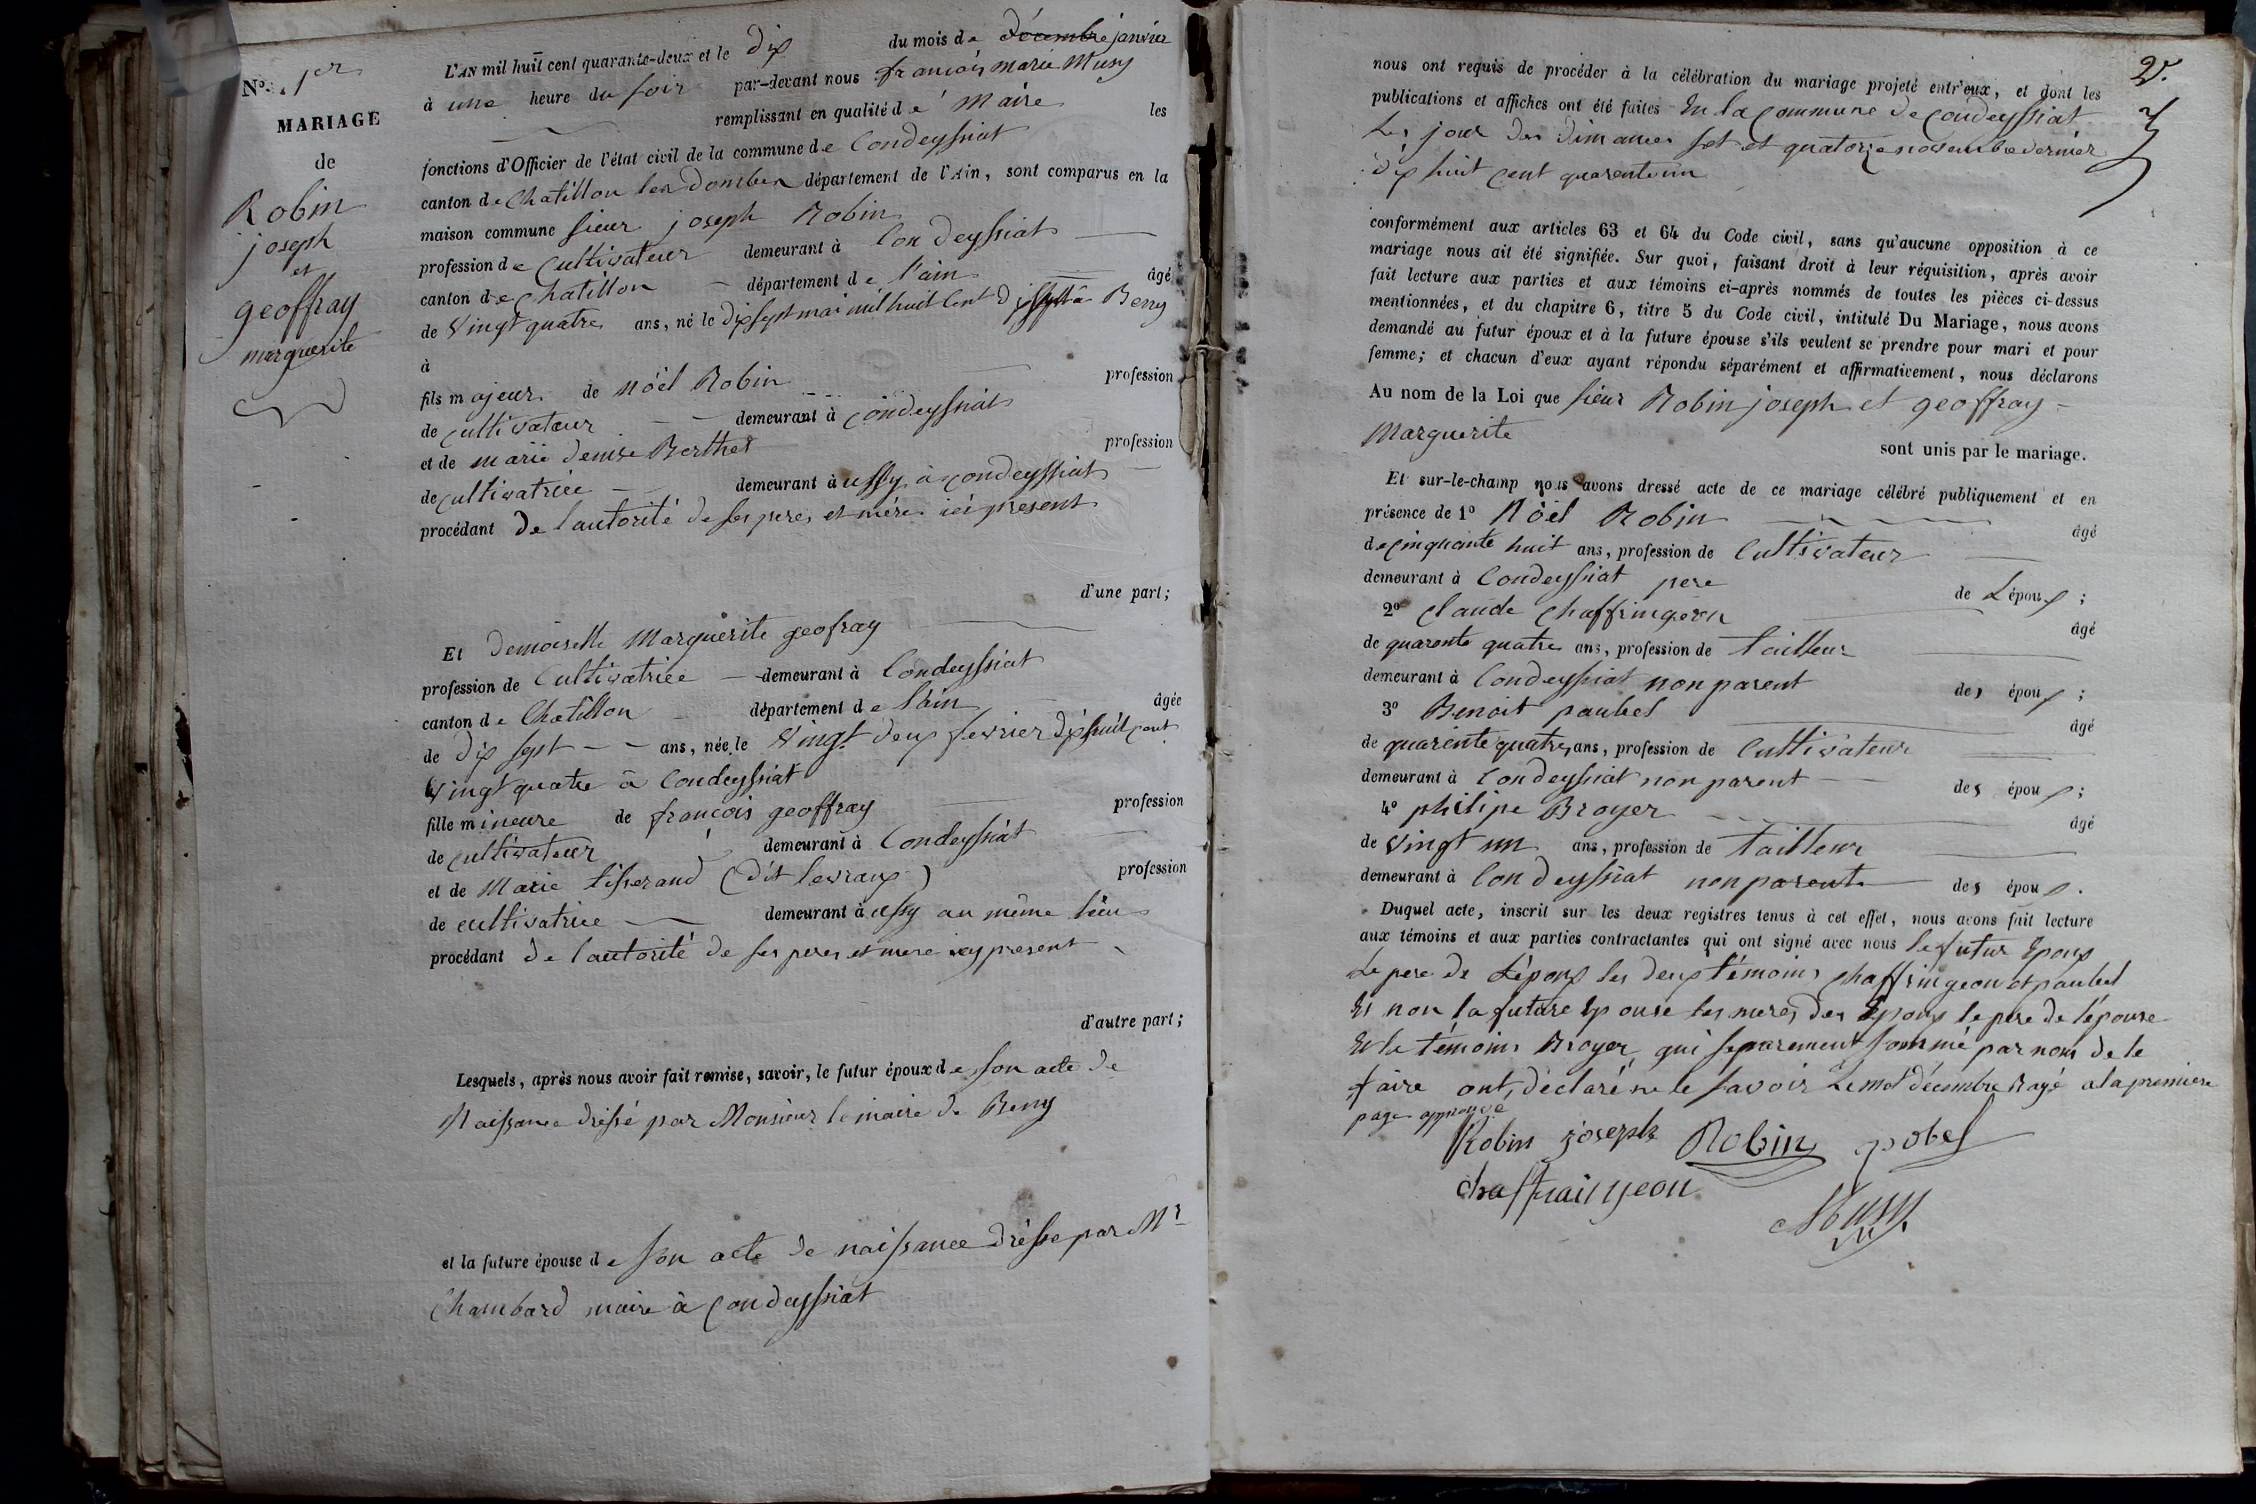 N° 1er
MARIAGE
de
Robin
joseph
et
geoffray
marguerite
L'AN mil huit cent quarante-deux et le dix du mois de décembre janvier
à une heure du soir par-devant nous françois marie Musy
remplissant en qualité de maire les
fonctions d'Officier de l'état civil de la commune de Condeyssiat
canton de Chatillon les Dombes département de l'Ain, sont comparus en la
maison commune sieur joseph Robin
profession de Cultivateur demeurant à Condeyssiat
canton de chatillon département de l'ain âgé
de Vingt quatre ans, né le dix sept mai mil huit Cent dix sept à Beny
à
fils majeur de nöel Robin profession
de cultivateur demeurant à condeyssiat
et de marie denise Berthet profession
de cultivatrice demeurant à assy à condeyssiat
procédant de l'autorité de ses peres et mére ici présent
d'une part;
Et demoiselle Marguerite geofray
profession de Cultivatrice demeurant à Condeyssiat
canton de Chatillon département de l'ain âgée
de dix sept ans, née le Vingt deux fevrier dix huit cent
Vingt quatre à Condeyssiat
fille mineure de françois geoffray profession
de cultivateur demeurant à Condeyssiat
et de Marie tisserand (dit levraux) profession
de cultivatrice demeurant à assy au même lieu
procédant de l'autorité de ses peres et mere icy present
d'autre part;
Lesquels, après nous avoir fait remise, savoir, le futur époux de son acte de
Naissance dréssé par Monsieur le maire de Beny
et la future épouse de son acte de naissance dréssé par Mr
Chambard maire à Condeyssiat
2.
nous ont requis de procéder à la célébration du mariage projeté entr'eux, et dont les
publications et affiches ont été faites En la Commune de Condeyssiat
Les jour des dimances set et quatorze novembre dernier
dix huit cent quarente un
conformément aux articles 63 et 64 du Code civil, sans qu'aucune opposition à ce
mariage nous ait été signifiée. Sur quoi, faisant droit à leur réquisition, après avoir
fait lecture aux parties et aux témoins ci-après nommés de toutes les pièces ci-dessus
mentionnées, et du chapitre 6, titre 5 du Code civil, intitulé Du Mariage, nous avons
demandé au futur époux et à la future épouse s'ils veulent se prendre pour mari et pour
femme; et chacun d'eux ayant répondu séparément et affirmativement, nous déclarons
Au nom de la Loi que sieur Robin joseph et geoffray
Marguerite
sont unis par le mariage.
Et sur-le-champ nous avons dressé acte de ce mariage célébré publiquement et en
présence de 1° Nöel Robin âgé
de cinquante huit ans, profession de Cultivateur
demeurant à Condeyssiat pere de L'époux;
2° claude chaffringeon âgé
de quarente quatre ans, profession de tailleur
demeurant à Condeyssiat non parent des époux;
3° Benoit paubel âgé
de quarente quatre ans, profession de Cultivateur
demeurant à Condeyssiat non parent des époux;
4° philipe Broyer âgé
de Vingt un ans, profession de tailleur
demeurant à Condeyssiat non parent des époux.
Duquel acte, inscrit sur les deux registres tenus à cet effet, nous avons fait lecture
aux témoins et aux parties contractantes qui ont signé avec nous le futur Epoux
Le pere de L'époux les deux témoins chaffringeon et paubel
Et non la future Epouse les meres des Epoux le pere de l'épouse
Et le témoins Broyer qui separement sommé par nous de le
faire ont déclaré ne le savoir Le mot décembre Rayé a la premiere
page approuvé
Robin joseph Robin pobel
chaffraingeon
Musy